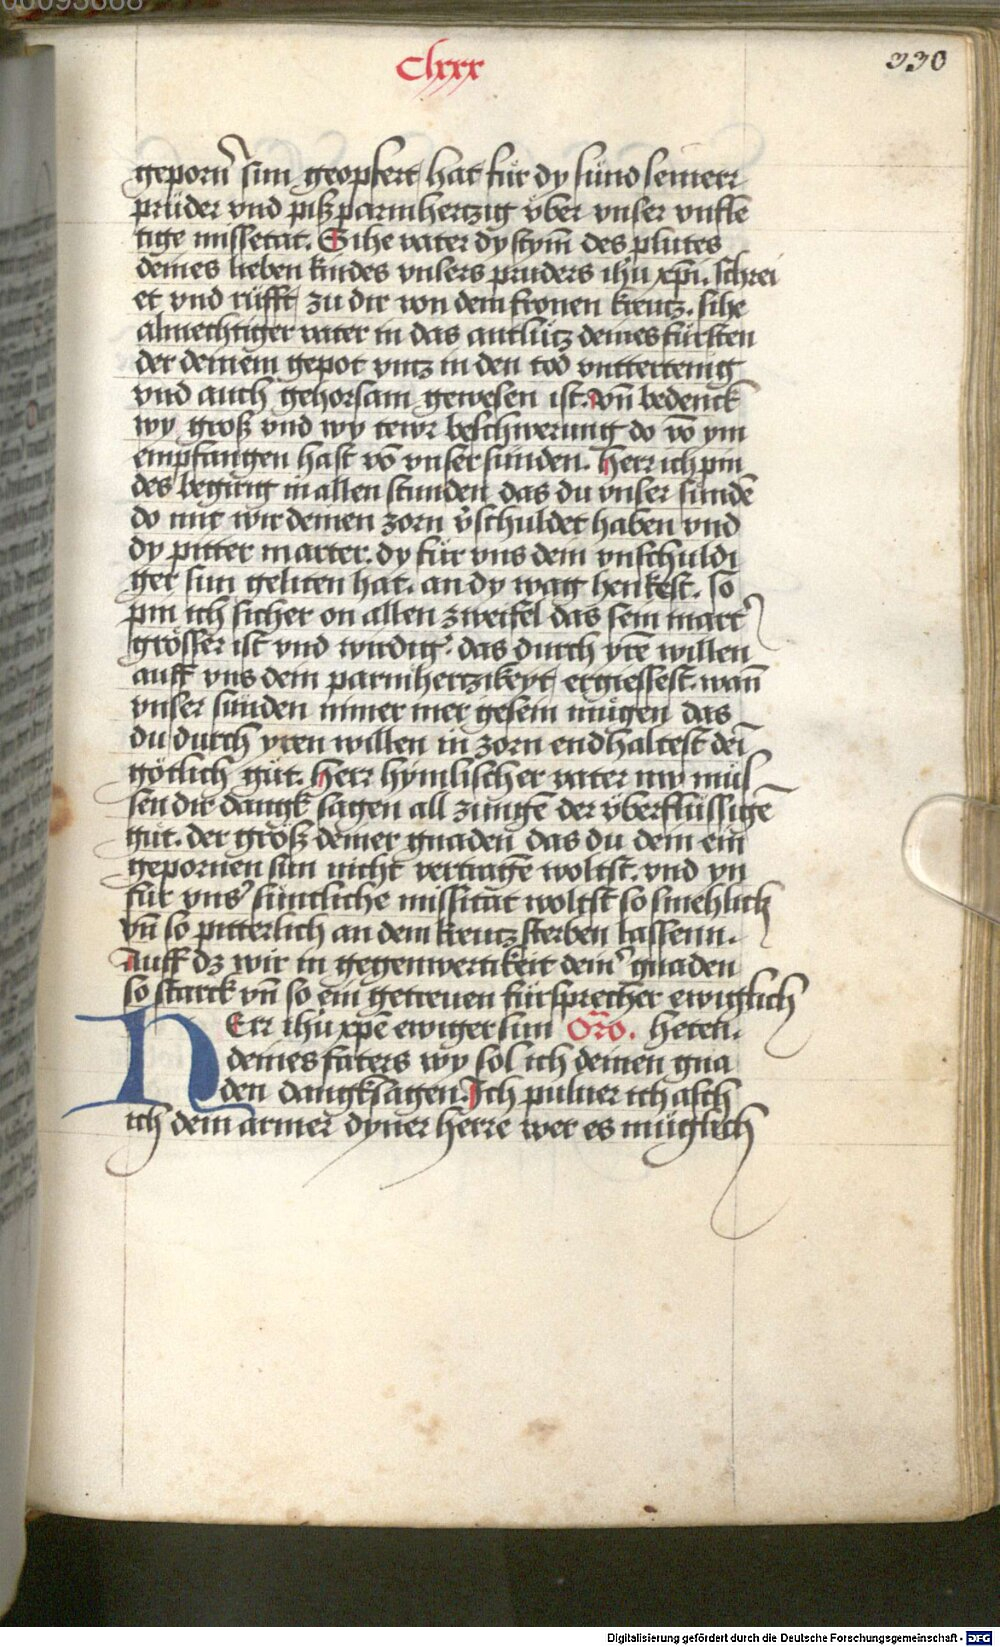 00095668
Clxxx
330
geporn̄ sun geopfert hat für dy sünd seinerr
prüder vnd piß parmhertzig vber vnser vnfle
tige missetat. Sihe vater dy stym̄ des plutes
deines lieben kindes vnsers pruders ihu xpi. schrei
et vnd rüfft zu dir von dem fronen kreutz. sihe
almechtiger vater in das antlütz deines fürsten
der deinem gepot vntz in den tod vnttertenig
vnd auch gehorsam gewesen ist. vn̄ bedenck
wy groß vnd wy tewr beschwerung do vō ym
empfangen hast vō vnser sunden. Herr ich pin
des begirig in allen stunden das du vnser sundē
do mit wir deinen zorn v̄schuldet haben vnd
dy pitter marter. dy für vns dein vnschuldi
ger sun geliten hat. an dy wag henkest. so
pin ich sicher on allen zweifel das sein mart̄
grösser ist vnd wirdiḡ. das durch yrē willen
auff vns dein parmhertzikeyt ergiessest. wan̄
vnser sünden nimer mer gesein mügen das
du durch yren willen in zorn endhaltest dei
götlich güt. Herr hymlischer vater nw müs
sen dir dangk sagen all zungē der vberflüssigē
güt. der größ deiner gnaden das du dein ein
gepornen sun nicht vertragē woltst. vnd yn
für vns̄ süntliche missitat woltst so smehlich
vn̄ so pitterlich an dem kreutz sterben lassenn.
Auff dz wir in gegenwertikeit dein̄ gnaden
so starck vn̄ so ein getreuen fürsprecher ewiglich
HErr ihu xpe ewiger sun Oro. heten.
deines faters wy sol ich deinen gna
den dangksagen. Ich puluer ich asch
ich dein armer dyner herre wer es müglich
Digitalisierung gefördert durch die Deutsche Forschungsgemeinschaft - DFG